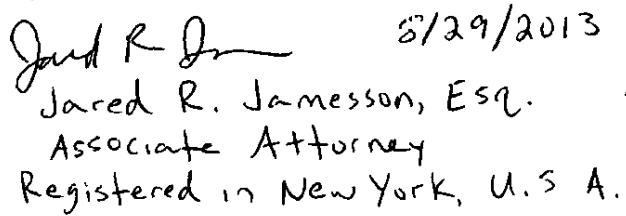 Jared R J 5/29/2013
Jared R. Jamesson, Esq.
Associate Attorney
Registered in New York, U.S A.